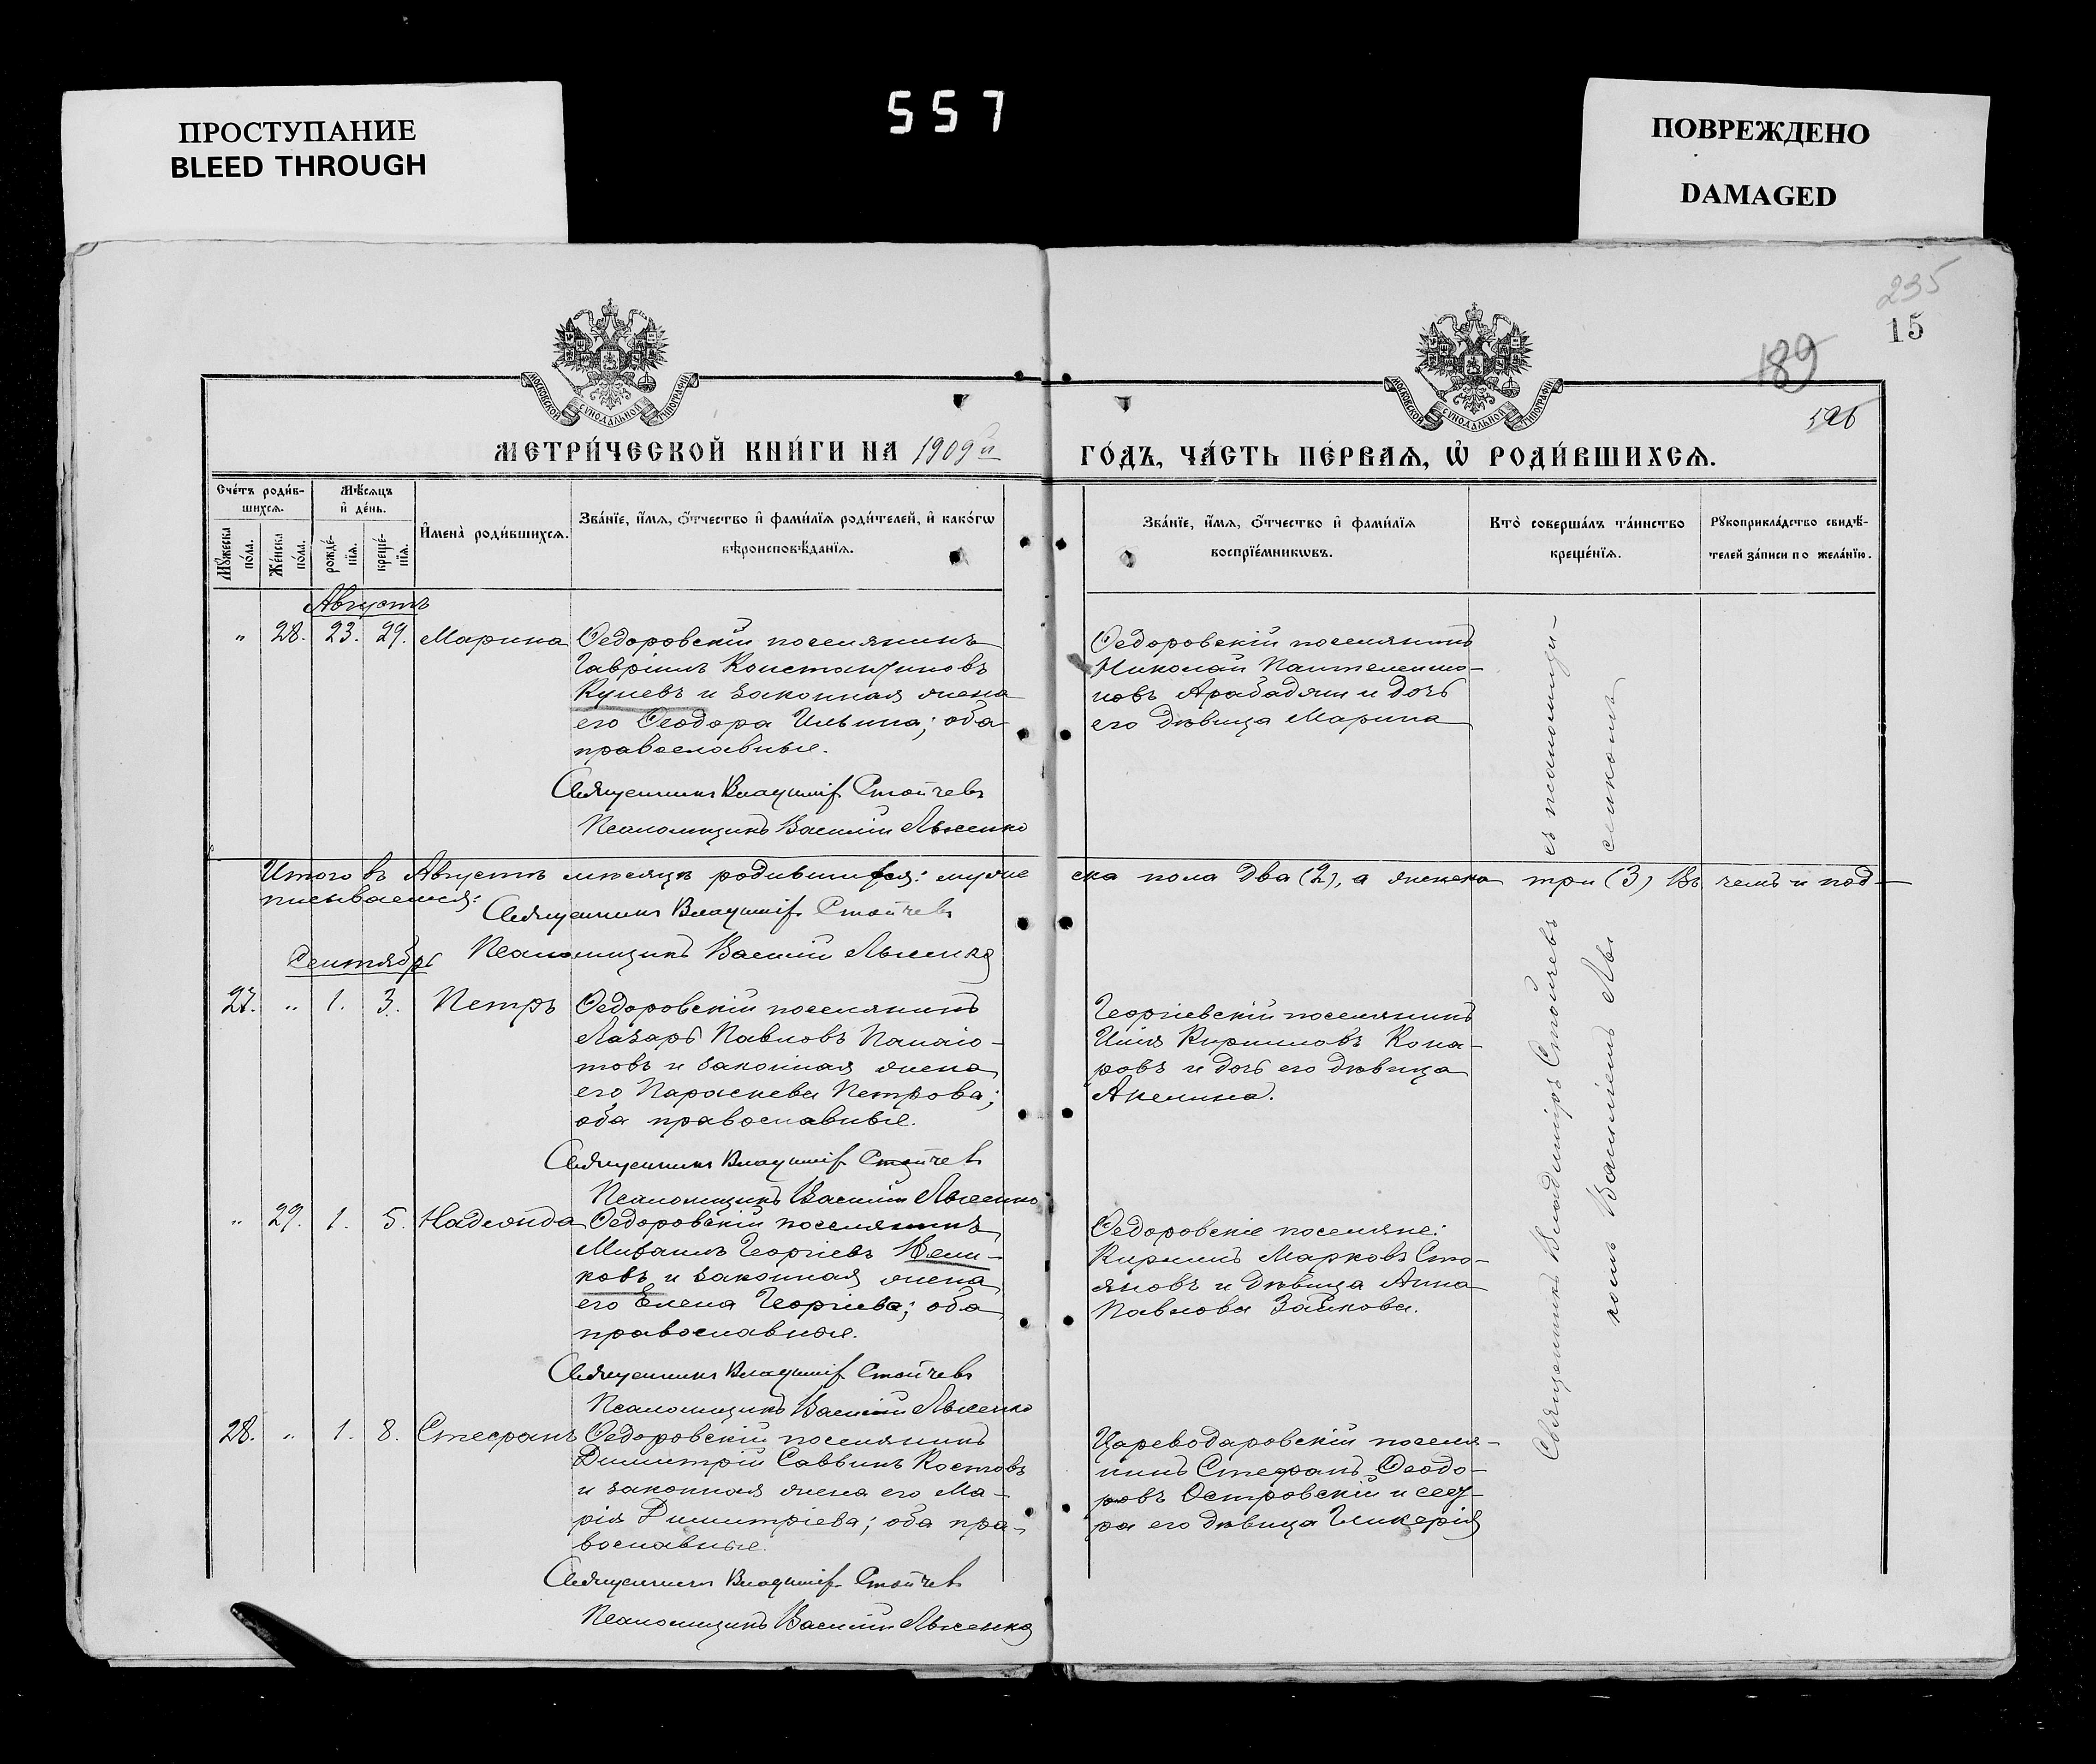 ПРОСТУПАНИЕ
BLEED THROUGH
557
ПОВРЕЖДЕНО
DAMAGED
235
15
189
МОСКОВСКОЙ СУНОДАЛЬНОЙ ТИПОГРАФІИ
МОСКОВСКОЙ СУНОДАЛЬНОЙ ТИПОГРАФІИ
МЕТРИ́ЧЕСКОЙ КНИ́ГИ НА 1909й
ГО́ДЪ, ЧА́СТЬ ПЕ́РВАѦ, Ѽ РОДИ́ВШИХСѦ.
Сче́тъ роди́в-
шихсѧ.
Мѣ́сѧцъ
и҆ де́нь.
Мꙋ́жеска
по́ла.
Же́нска
по́ла.
рожде́-
нїѧ.
креще́-
нїѧ.
И҆мена̀ роди́вшихсѧ.
Зва́нїе, и҆́мѧ, ѻ҆́тчество и҆ фами́лїѧ роди́телей, и҆ како́гѡ
вѣроисповѣ́данїѧ.
Зва́нїе, и҆́мѧ, ѻ҆́тчество и҆ фами́лїѧ
воспрїе́мникѡвъ.
Кто̀ соверша́лъ та́инство
креще́нїѧ.
Рꙋкоприкла́дство свидѣ́-
телей за́писи по жела́нїю.
Августъ
" 28. 23. 29. Марина Ѳедоровскій поселянинъ
Гавріилъ Константиновъ
Кулевъ и законная жена
его Ѳеодора Ильина; оба
православные.
Священникъ Владиміръ Стойчевъ
Псаломщикъ Василій Лысенко
Ѳедоровскій поселянинъ
Николай Пантелеимо-
новъ Арабаджи и дочь
его дѣвица Марина
Итого въ Августѣ мѣсяцѣ родившихся: муже
ска пола два (2), а женска три (3) Въ чемъ и под-
писываемся:
Священникъ Владиміръ Стойчевъ
Псаломщикъ Василій Лысенко
Сентябрь
27. " 1. 3. Петръ Ѳедоровскій поселянинъ
Лазарь Павловъ Панаіо-
товъ и законная жена
его Параскева Петрова;
оба православные.
Священникъ Владиміръ Стойчевъ
Псаломщикъ Василій Лысенко
Георгіевскій поселянинъ
Илія Кирилловъ Кома-
ровъ и дочь его дѣвица
Акилина.
" 29. 1. 5. Надежда Ѳедоровскій поселянинъ
Михаилъ Георгіевъ Вели-
ковъ и законная жена
его Елена Георгіева; оба
православные.
Священникъ Владиміръ Стойчевъ
Псаломщикъ Василій Лысенко
Ѳедоровскіе поселяне:
Кириллъ Марковъ Сто-
яновъ и дѣвица Анна
Павлова Займова.
28. " 1. 8. Стефанъ Ѳедоровскій поселянинъ
Димитрій Саввинъ Костовъ
и законная жена его Ма-
рія Димитріева; оба пра-
вославные.
Священникъ Владиміръ Стойчевъ
Псаломщикъ Василій Лысенко
Цареводаровскій поселя-
нинъ Стефанъ Ѳеодо-
ровъ Островскій и сест-
ра его дѣвица Гликерія
Священникъ Владиміръ Стойчевъ съ псаломщи-
комъ Василіемъ Лысенкомъ